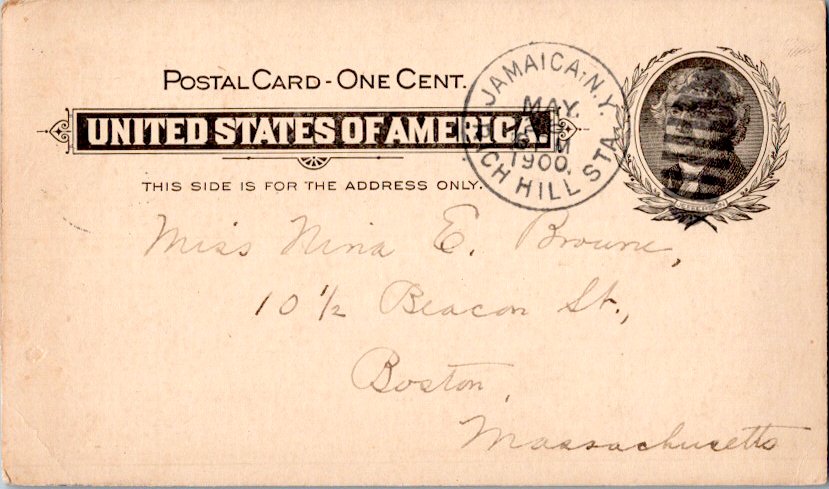 POSTAL CARD - ONE CENT.
UNITED STATES OF AMERICA.
THIS SIDE IS FOR THE ADDRESS ONLY.
JAMAICA, N.Y.
MAY
1900
CH HILL STA.
Miss Nina E. Browne,
10 1/2 Beacon St.,
Boston,
Massachusetts